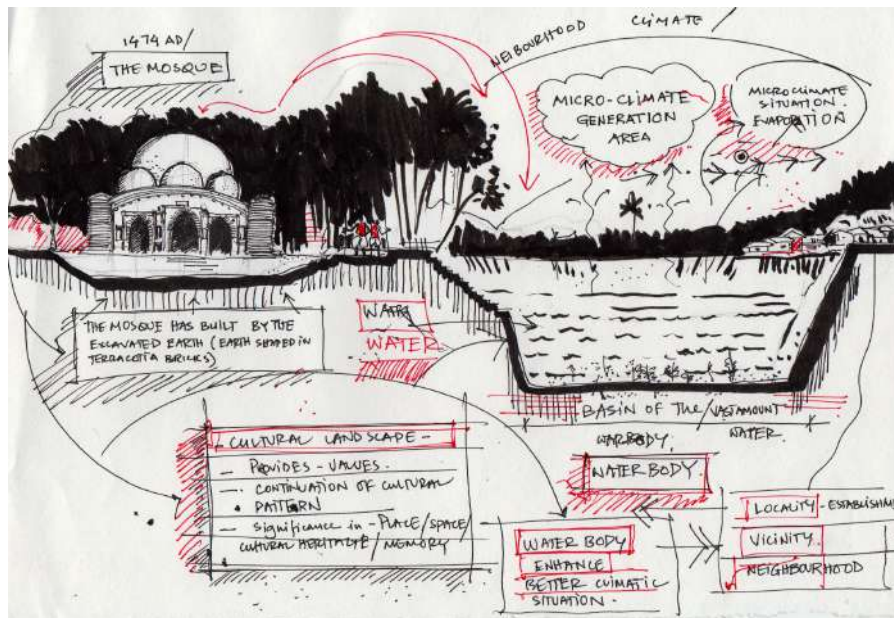 1474 AD/
THE MOSQUE
NEIBOURHOOD CLIMATE /
MICRO-CLIMATE
GENERATION
AREA
MICROCLIMATE
SITUATION.
EVAPORATION
THE MOSQUE HAS BUILT BY THE
EXCAVATED EARTH (EARTH SHAPED IN
TERRACOTTA BRICKS)
WATER
WATER
BASIN OF THE / VASTAMOUNT
WATER
WATER BODY.
- CULTURAL LANDSCAPE -
- PROVIDES - VALUES.
- CONTINUATION OF CULTURAL
PATTERN
- Significance in - PLACE/SPACE/
CULTURAL HERITAGE/MEMORY
WATER BODY
ENHANCE
BETTER CLIMATIC
SITUATION.
LOCALITY - ESTABLISHME
VICINITY
NEIGHBOURHOOD